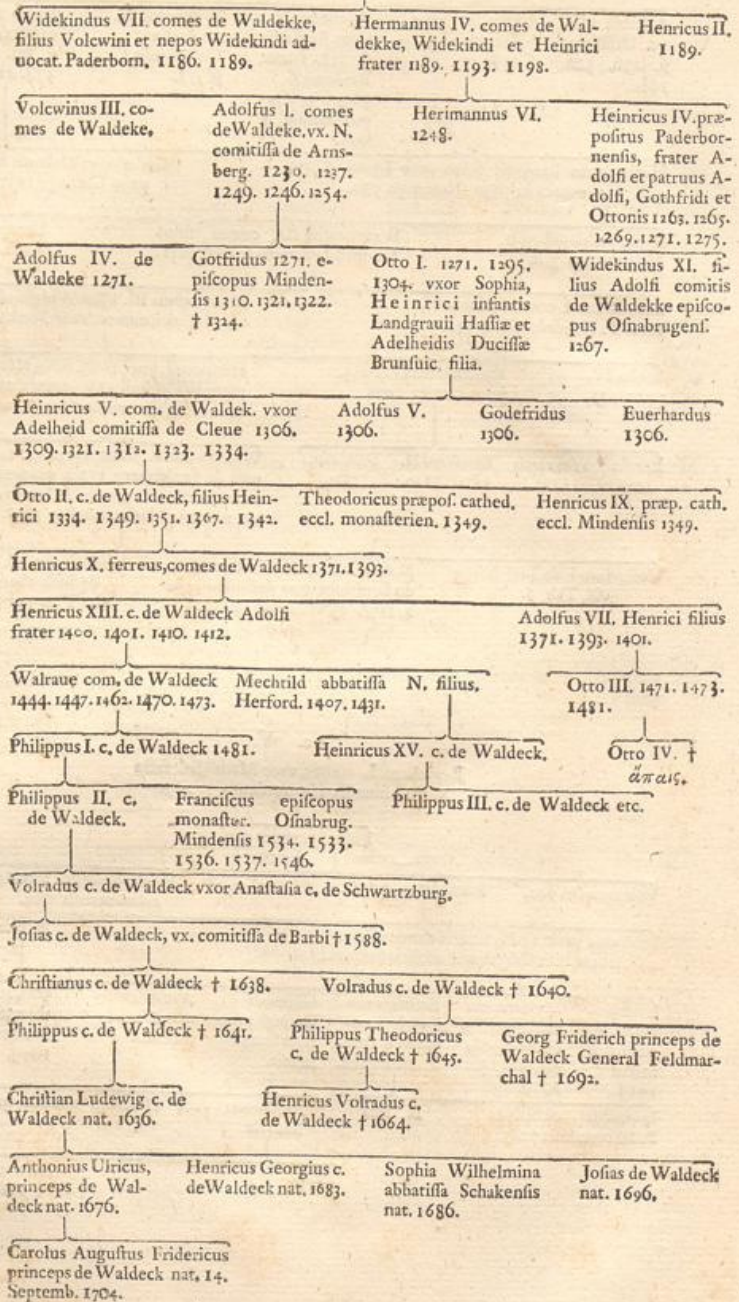 Widekindus VII. comes de Waldekke,
filius Volcwini et nepos Widekindi ad-
uocat. Paderborn. 1186. 1189.
Hermannus IV. comes de Wal-
dekke, Widekindi et Heinrici
frater 1189. 1193. 1198.
Henricus II.
1189.
Volcwinus III. co-
mes de Waldeke.
Adolfus I. comes
de Waldeke. vx. N.
comitiſſa de Arns-
berg. 1230. 1237.
1249. 1246. 1254.
Herimannus VI.
1248.
Heinricus IV. præ-
poſitus Paderbor-
nenſis, frater A-
dolfi et patruus A-
dolfi, Gothfridi et
Ottonis 1263. 1265.
1269. 1271. 1275.
Adolfus IV. de
Waldeke 1271.
Gotfridus 1271. e-
piſcopus Minden-
ſis 1310. 1321. 1322.
† 1324.
Otto I. 1271. 1295.
1304. vxor Sophia,
Heinrici infantis
Landgrauii Haſſiæ et
Adelheidis Duciſſæ
Brunſuic filia.
Widekindus XI. fi-
lius Adolfi comitis
de Waldekke epiſco-
pus Oſnabrugenſ.
1267.
Heinricus V. com. de Waldek. vxor
Adelheid comitiſſa de Cleue 1306.
1309. 1321. 1312. 1323. 1334.
Adolfus V.
1306.
Godefridus
1306.
Euerhardus
1306.
Otto II. c. de Waldeck, filius Hein-
rici 1334. 1349. 1351. 1367. 1342.
Theodoricus præpoſ. cathed.
eccl. monaſterien. 1349.
Henricus IX. præp. cath.
eccl. Mindenſis 1349.
Henricus X. ferreus, comes de Waldeck 1371. 1393.
Henricus XIII. c. de Waldeck Adolfi
frater 1400. 1401. 1410. 1412.
Adolfus VII. Henrici filius
1371. 1393. 1401.
Walraue com. de Waldeck
1444. 1447. 1462. 1470. 1473.
Mechtild abbatiſſa
Herford. 1407. 1431.
N. filius.
Otto III. 1471. 1473.
1481.
Philippus I. c. de Waldeck 1481.
Heinricus XV. c. de Waldeck.
Otto IV. †
ἄπαις.
Philippus II. c.
de Waldeck.
Franciſcus epiſcopus
monaſter. Oſnabrug.
Mindenſis 1534. 1533.
1536. 1537. 1546.
Philippus III. c. de Waldeck etc.
Volradus c. de Waldeck vxor Anaſtaſia c. de Schwartzburg.
Joſias c. de Waldeck, vx. comitiſſa de Barbi † 1588.
Chriſtianus c. de Waldeck † 1638.
Volradus c. de Waldeck † 1640.
Philippus c. de Waldeck † 1641.
Philippus Theodoricus
c. de Waldeck † 1645.
Georg Friderich princeps de
Waldeck General Feldmar-
chal † 1692.
Chriſtian Ludewig c. de
Waldeck nat. 1636.
Henricus Volradus c.
de Waldeck † 1664.
Anthonius Ulricus,
princeps de Wal-
deck nat. 1676.
Henricus Georgius c.
de Waldeck nat. 1683.
Sophia Wilhelmina
abbatiſſa Schakenſis
nat. 1686.
Joſias de Waldeck
nat. 1696.
Carolus Auguſtus Fridericus
princeps de Waldeck nat. 14.
Septemb. 1704.